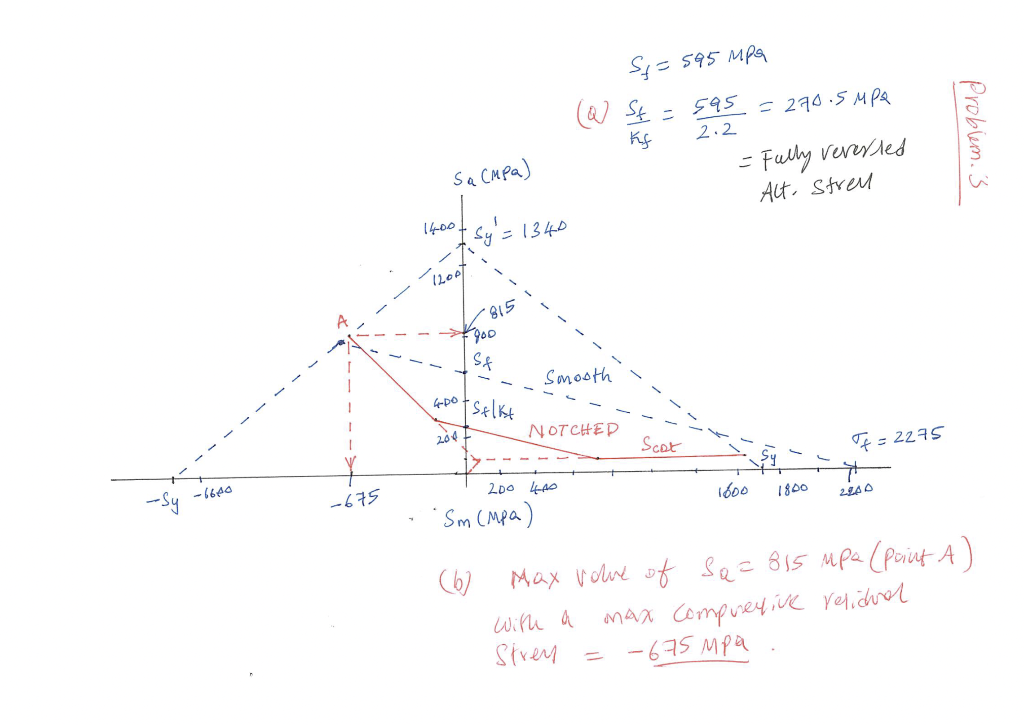 Problem. 3
Sf = 595 MPa
(a) Sf/Kf = 595/2.2 = 270.5 MPa
= Fully reversed
Alt. Stress
Sa (MPa)
1400
Sy' = 1340
1200
815
A
800
Sf
Smooth
400
Sf/Kf
NOTCHED
200
Scat
Sy
σf = 2275
-Sy
-1600
-675
200
400
1600
1800
2200
Sm (MPa)
(b) Max value of Sa = 815 MPa (point A)
with a max compressive residual
Stress = -675 MPa.